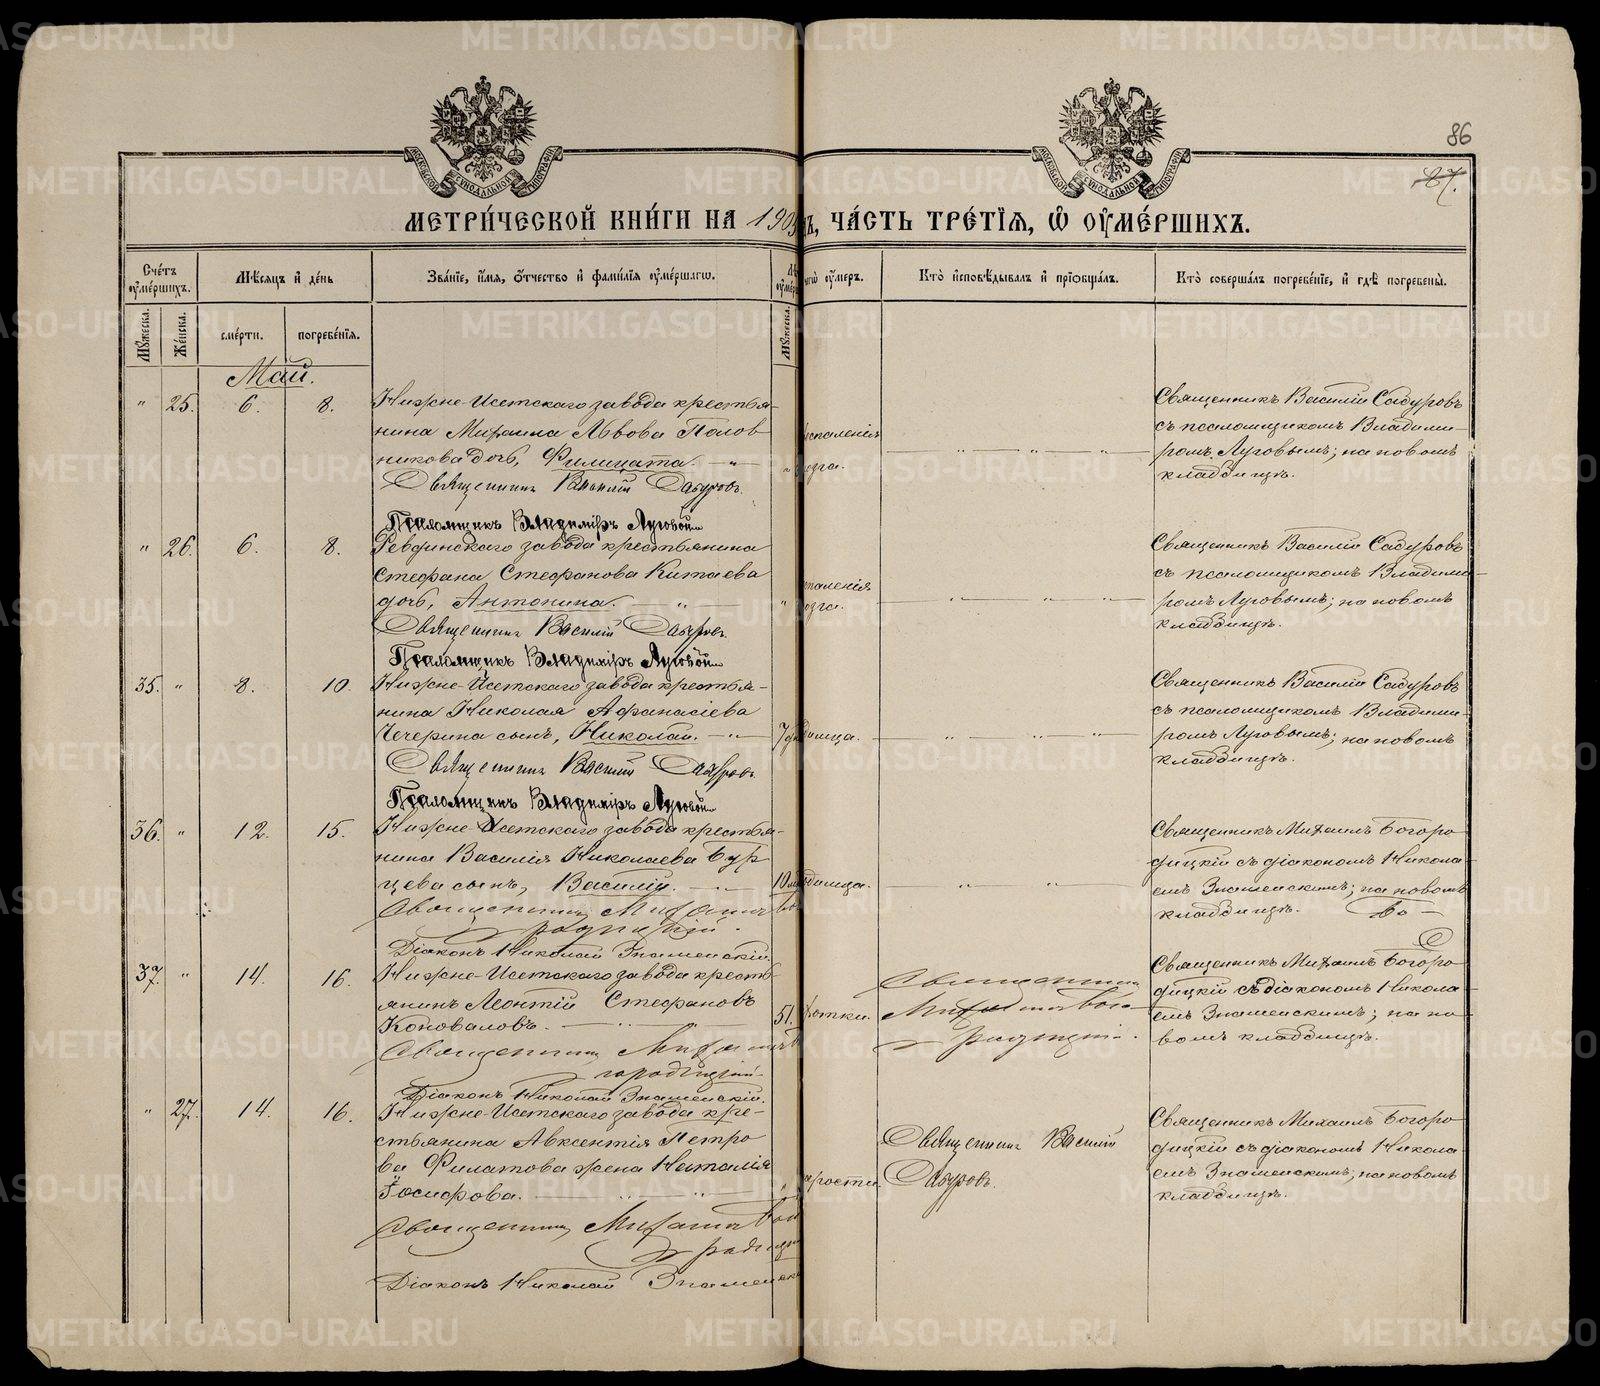 86
87.
МЕТРИ́ЧЕСКОЙ КНИ́ГИ НА 1909
Ъ, ЧА́СТЬ ТРЕ́ТІѦ, Ѡ ОУМЕ́РШИХЪ.
Сче́тъ оуме́ршихъ.
Мѣсяцъ и де́нь
Зва́ніе, и́мя, о́тчество и фами́лія оуме́ршагѡ.
оуме́ръ.
Кто̀ исповѣ́дывалъ и пріобща́лъ.
Кто̀ соверша́лъ погребе́ніе, и гдѣ погребены̀.
Мꙋ́жеска.
Же́нска.
сме́рти.
погребе́нія.
Мꙋ́жеска.
Май.
" 25. 6. 8.
Нижне-Исетскаго завода крестья-
нина Михаила Львова Полов-
никова дочь, Филицата. — " —
Священникъ Василій Сабуровъ.
Псаломщикъ Владиміръ Луговой
спаленія
озга.
Священникъ Василій Сабуровъ
съ псаломщикомъ Владими-
ромъ Луговымъ; на новомъ
кладбищѣ.
" 26. 6. 8.
Ревдинскаго завода крестьянина
Стефана Стефанова Китаева
дочь, Антонина. — " —
Священникъ Василій Сабуровъ.
Псаломщикъ Владиміръ Луговой
паленія
озга.
Священникъ Василій Сабуровъ
съ псаломщикомъ Владими-
ромъ Луговымъ; на новомъ
кладбищѣ.
35. " 8. 10.
Нижне-Исетскаго завода крестья-
нина Николая Афанасіева
Чечерина сынъ, Николай. — " —
Священникъ Василій Сабуровъ.
Псаломщикъ Владиміръ Луговой
Священникъ Василій Сабуровъ
съ псаломщикомъ Владими-
ромъ Луговымъ; на новомъ
кладбищѣ.
36. " 12. 15.
Нижне-Исетскаго завода крестья-
нина Василія Николаева Бур-
цева сынъ, Василій. — " —
Священникъ Михаилъ Бо-
городицкій.
Діаконъ Николай Знаменскій.
Священникъ Михаилъ Богоро-
дицкій съ діакономъ Никола-
емъ Знаменскимъ; на новомъ
кладбищѣ.
37. " 14. 16.
Нижне-Исетскаго завода кресть-
янинъ Леонтій Стефановъ
Коноваловъ. — " —
Священникъ Михаилъ Бо-
городицкій.
Діаконъ Николай Знаменскій.
51.
Священникъ
Михаилъ Бого-
родицкій.
Священникъ Михаилъ Богоро-
дицкій съ діакономъ Никола-
емъ Знаменскимъ; на но-
вомъ кладбищѣ.
" 27. 14. 16.
Нижне-Исетскаго завода кре-
стьянина Авксентія Петро-
ва Филатова жена Наталія
Іосифова. — " —
Священникъ Михаилъ Бог
ородицк
Діаконъ Николай Знаменск
арости.
Священникъ Василій
Сабуровъ.
Священникъ Михаилъ Богоро-
дицкій съ діакономъ Никола-
емъ Знаменскимъ; на новомъ
кладбищѣ.
METRIKI.GASO-URAL.RU